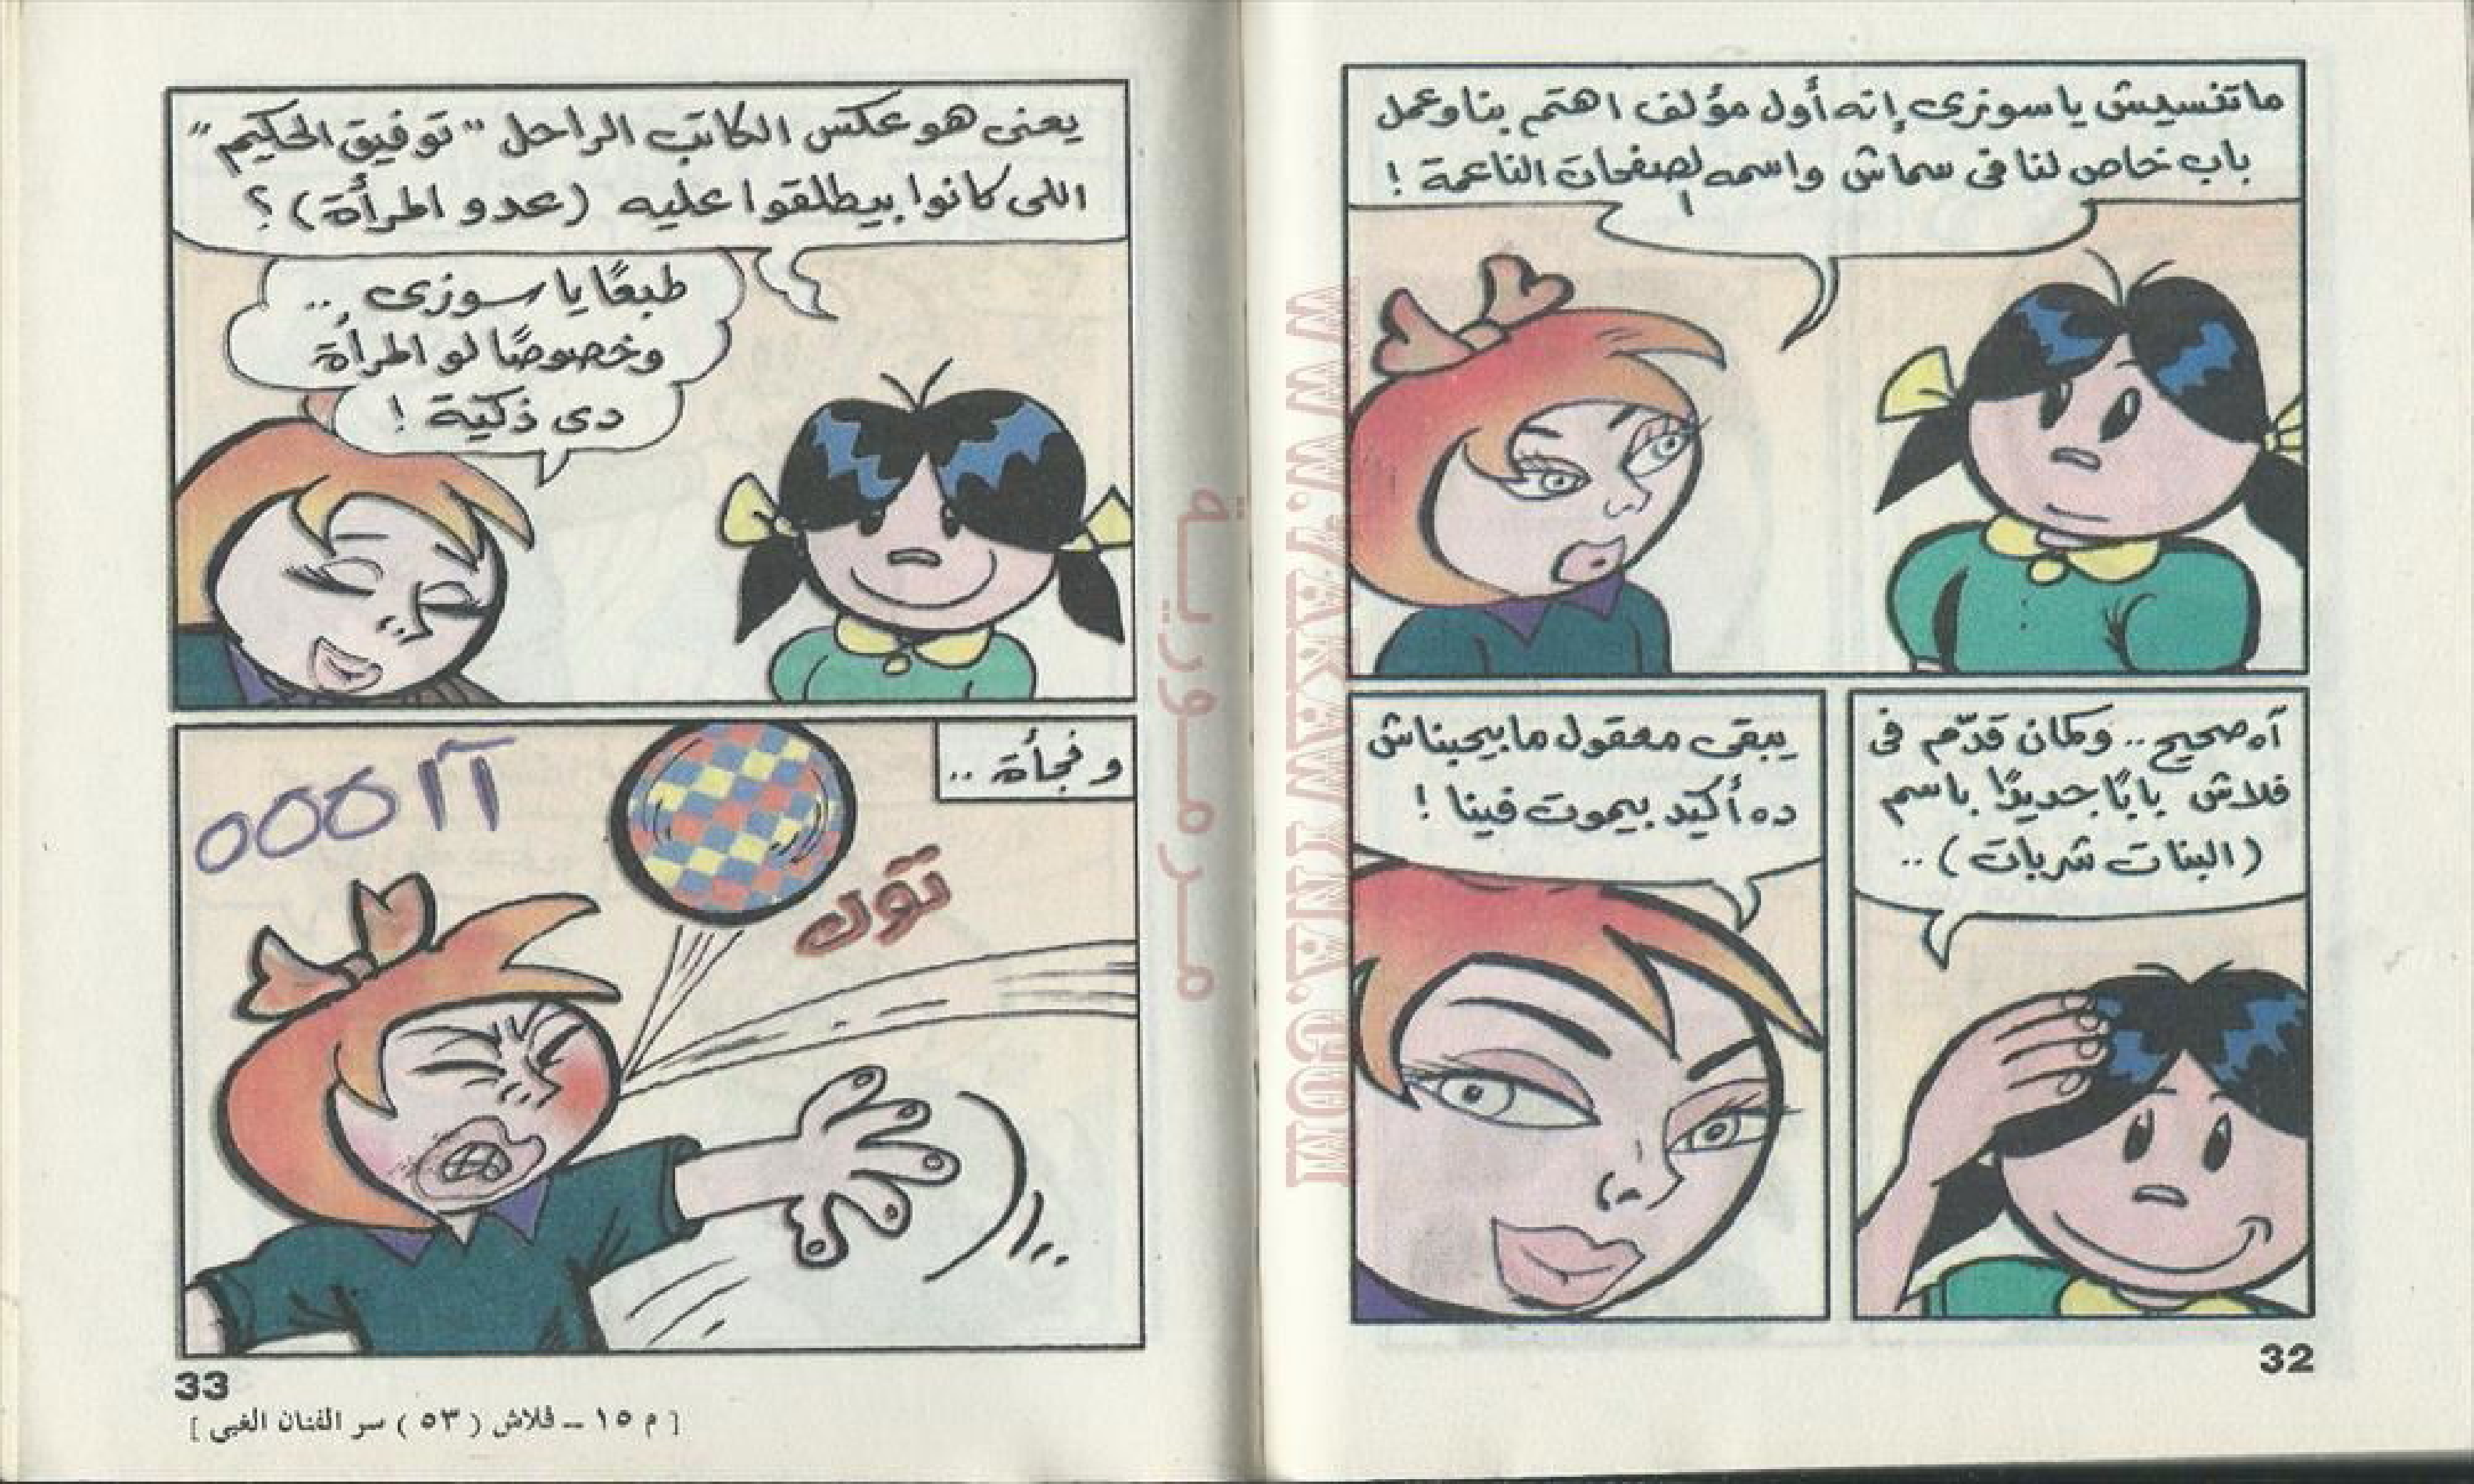 ماتنسيش يا سوزى إنه أول مؤلف اهتم بنا وعمل
باب خاص لنا فى سماش واسمه الصفحات الناعمة !
آه صحيح .. وكمان قدّم فى
فلاش بابًا جديدًا باسم
(البنات شربات) ..
يبقى معقول مابيحبناش
ده أكيد بيموت فينا !
32
يعنى هو عكس الكاتب الراحل "توفيق الحكيم"
اللى كانوا بيطلقوا عليه (عدو المرأة) ؟
طبعًا يا سوزى ..
وخصوصًا لو المرأة
دى ذكيّة !
وفجأة ..
آآ ه ه ه ه
توك
33
[ م ١٥ – فلاش ( ٥٣ ) سر الفنان الغبى ]
مرمورية